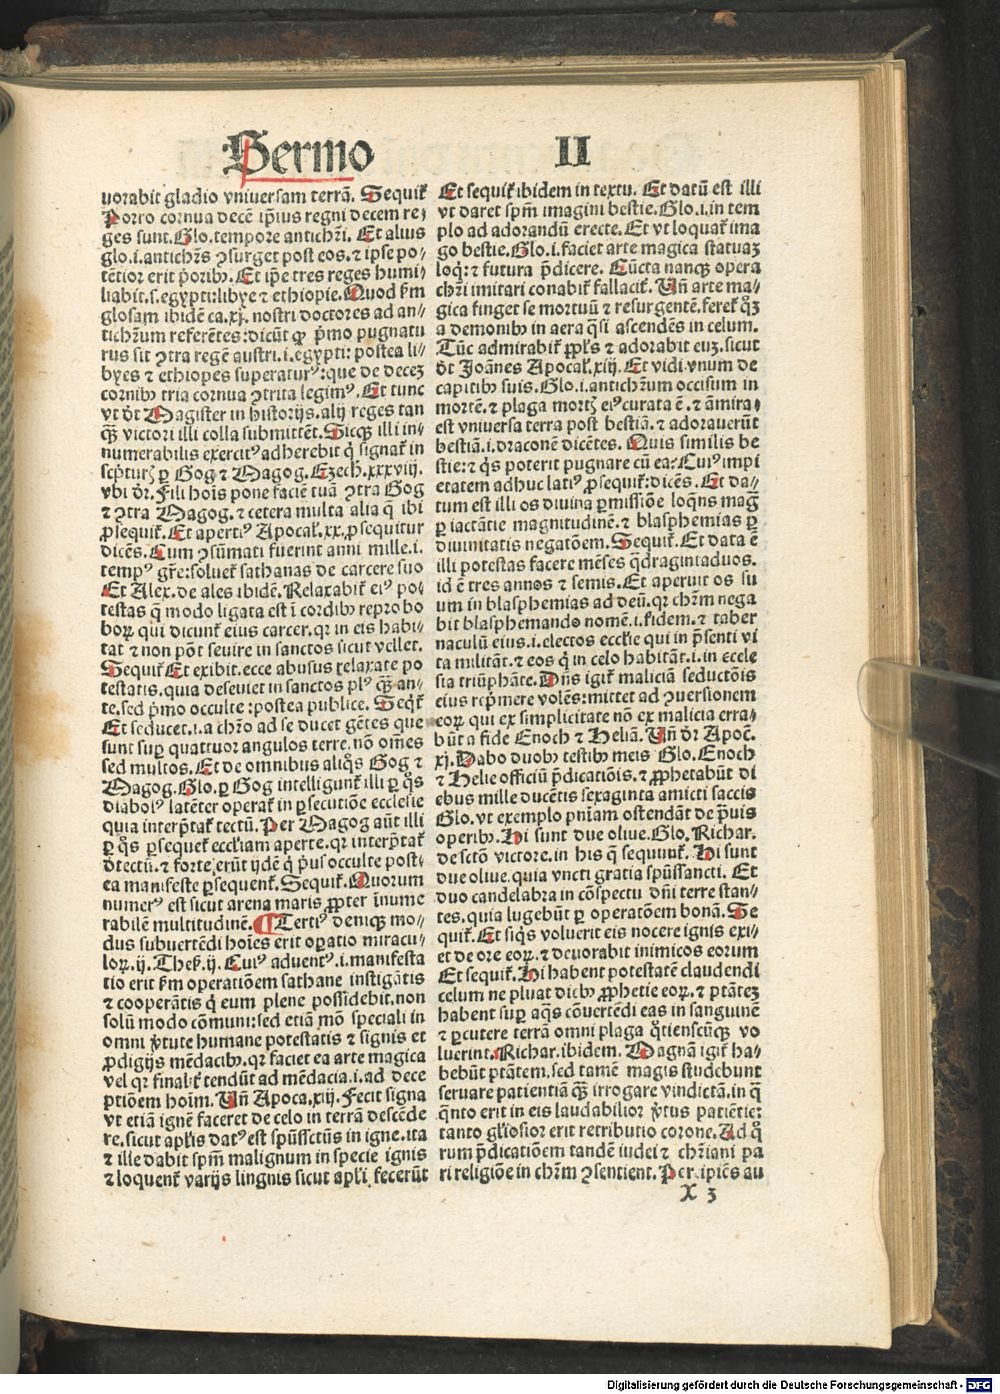 Sermo II
uorabit gladio vniuersam terrã. Sequit̃
Porro cornua decẽ ip̃ius regni decem re⸗
ges sunt. Glo. tempore antichr̃i. Et alius
glo. i. antichr̃s ꝯsurget post eos. ⁊ ipse po⸗
tẽtior erit p̃orib⁹. Et ip̃e tres reges humi⸗
liabit. s. egypti: libye ⁊ ethiopie. Quod ẜm
glosam ibidẽ ca. xj. nostri doctores ad an⸗
tichr̃um referẽtes: dicũt ꝙ p̃mo pugnatu
rus sit ꝯtra regẽ austri. i. egypti: postea li⸗
byes ⁊ ethiopes superatur⁹: que de decez
cornib⁹ tria cornua ꝯtrita legim⁹. Et tunc
vt dt̃ Magister in historijs. alij reges tan
ꝙ̃ victori illi colla submittẽt. Sicqꝫ illi in⸗
numerabilis exercit⁹ adherebit q̇ signat̃ in
scpturꝭ ꝑ Gog ⁊ Magog. Ezech. xxxviij.
vbi dr̃. Fili hoĩs pone faciẽ tuã ꝯtra Gog
⁊ ꝯtra Magog. ⁊ cetera multa alia q̃ ibi
ꝓsequit̃. Et aperti⁹ Apocal̃. xx. ꝓsequitur
dicẽs. Cum ꝯsũmati fuerint anni mille. i.
temp⁹ gr̃e: soluet̃ sathanas de carcere suo
Et Alex. de ales ibidẽ. Relaxabit̃ ei⁹ po⸗
testas q̃ modo ligata est ĩ cordib⁹ repro bo
boꝝ qui dicunt̃ eius carcer. qr in eis habi⸗
tat ⁊ non põt seuire in sanctos sicut vellet.
Sequit̃ Et exibit. ecce abusus relaxate po
testatis. quia deseuiet in sanctos pl⁹ ꝙ̃ an⸗
te. sed p̃mo occulte: postea publice. Seq̃t̃
Et seducet. i. a chr̃o ad se ducet gẽtes que
sunt suꝑ quattuor angulos terre. nõ om̃es
sed multos. Et de omnibus aliq̃s Gog ⁊
Magog. Glo. ꝑ Gog intelligunt̃ illi ꝑ q̃s
diabol⁹ latẽter operat̃ in ꝑsecutiõe ecclesie
quia interp̃tat̃ tectũ. Per Magog aũt illi
ꝑ q̃s ꝑsequet̃ eccl̃iam aperte. qr interp̃tat̃
detectũ. ⁊ forte erũt ijdẽ q̇ p̃us occulte post⸗
ea manifeste ꝑsequent̃. Sequit̃. Quorum
numer⁹ est sicut arena maris ꝓpter innume
rabilẽ multitudinẽ. ¶ Terti⁹ deniqꝫ mo⸗
dus subuertẽdi hoĩes erit oꝑatio miracu⸗
loꝝ. ij. Thes̃. ij. Cui⁹ aduent⁹. i. manifesta
tio erit ẜm operatiõem sathane instigãtis
⁊ cooperãtis q̇ eum plene possidebit. non
solũ modo cõmuni: sed etiã mõ speciali in
omni v̓tute humane potestatis ⁊ signis et
ꝓdigijs mẽdacib⁹. qr faciet ea arte magica
vel qr finalit̃ tendũt ad mẽdacia. i. ad dece
ptiõem hoĩm. Vñ Apoca. xiij. Fecit signa
vt etiã ignẽ faceret de celo in terrã descẽde
re. sicut apl̃is dat⁹ est spũssctũs in igne. ita
⁊ ille dabit spm̃ malignum in specie ignis
⁊ loquent̃ varijs linguis sicut apl̃i fecerũt
Et sequit̃ ibidem in textu. Et datũ est illi
vt daret spm̃ imagini bestie. Glo. i. in tem
plo ad adorandũ erecte. Et vt loquat̃ ima
go bestie. Glo. i. faciet arte magica statuaꝫ
loq̇: ⁊ futura p̃dicere. Cũcta nanqꝫ opera
chr̃i imitari conabit̃ fallacit̃. Vñ arte ma⸗
gica finget se mortuũ ⁊ resurgentẽ. feret̃ q̃ꝫ
a demonib⁹ in aera q̃si ascendẽs in celum.
Tũc admirabit̃ ppl̃s ⁊ adorabit euꝫ. sicut
dt̃ Joãnes Apocal̃. xiij. Et vidi vnum de
capitib⁹ suis. Glo. i. antichr̃um occisum in
mortẽ. ⁊ plaga mortꝭ ei⁹ curata ẽ. ⁊ ãmira⸗
est vniuersa terra post bestiã. ⁊ adorauerũt
bestiã. i. draconẽ dicẽtes. Quis similis be
stie: ⁊ q̇s poterit pugnare cũ ea? Cui⁹ impi
etatem adhuc lati⁹ ꝓsequit̃: dicẽs. Et da⸗
tum est illi os diuina ꝑmissiõe loq̃ns mag̃
ꝑ iactãtie magnitudinẽ. ⁊ blasphemias ꝑ
diuinitatis negatõem. Sequit̃. Et data ẽ
illi potestas facere mẽses q̃draginta duos.
id ẽ tres annos ⁊ semis. Et aperuit os su
um in blasphemias ad deũ. qr chr̃m nega
bit blasphemando nomẽ. i. fidem. ⁊ taber
naculũ eius. i. electos eccl̃ie qui in p̃senti vi
ta militãt. ⁊ eos q̇ in celo habitãt. i. in eccle
sia triũphãte. Dñs igit̃ maliciã seductõis
eius rep̃mere volẽs: mittet ad ꝯuersionem
eoꝝ qui ex simplicitate nõ ex malicia erra⸗
bũt a fide Enoch ⁊ Heliã. Vñ dr̃ Apoc̃.
xj. Dabo duob⁹ testib⁹ meis Glo. Enoch
⁊ Helie officiũ p̃dicatiõis. ⁊ ꝓphetabũt di
ebus mille ducẽtis sexaginta amicti saccis
Glo. vt exemplo pnĩam ostendãt de p̃uis
operib⁹. Hi sunt due oliue. Glo. Richar.
de sctõ victore. in his q̃ sequunt̃. Hi sunt
due oliue. quia vncti gratia spũssancti. Et
duo candelabra in cõspectu dñi terre stan⸗
tes. quia lugebũt ꝑ operatõem bonã. Se
quit̃. Et siq̇s voluerit eis nocere ignis exi⸗
et de ore eoꝝ. ⁊ deuorabit inimicos eorum
Et sequit̃. Hi habent potestatẽ claudendi
celum ne pluat dieb⁹ ꝓphetie eoꝝ. ⁊ ptãteꝫ
habent suꝑ aq̃s cõuertẽdi eas in sanguinẽ
⁊ ꝑcutere terrã omni plaga q̊tienscũqꝫ vo
luerint. Richar. ibidem. Magnã igit̃ ha⸗
bebũt ptãtem. sed tamẽ magis studebunt
seruare patientiã ꝙ̃ irrogare vindictã. in q̃
q̃nto erit in eis laudabilior v̓tus patiẽtie:
tanto gl̃iosior erit retributio corone. Ad q̊
rum p̃dicatiõem tandẽ iudei ⁊ chr̃iani pa
ri religiõe in chr̃m ꝯsentient. Percipiẽs au
X 3
Digitalisierung gefördert durch die Deutsche Forschungsgemeinschaft - DFG